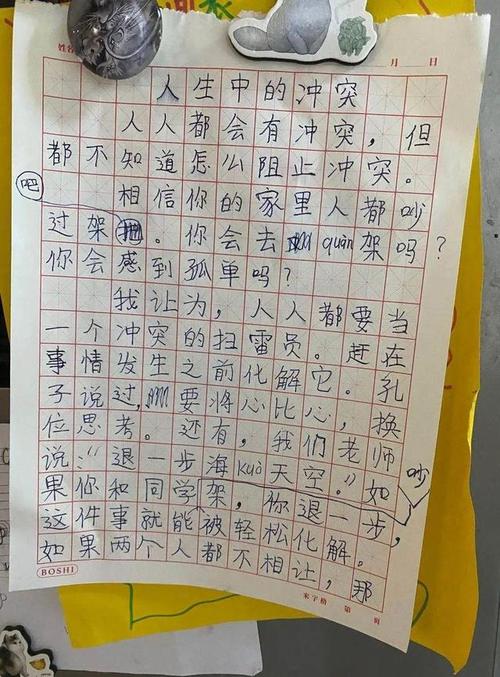 姓名
月 日
人生中的冲突
人人都会有冲突，但
都不知道怎么阻止冲突。
相信你的家里人都吵
过架吧。你会去quàn架吗？
你会感到孤单吗？
我让为，人人都要当
一个冲突的扫雷员。赶在
事情发生之前化解它。孔
子说过，要将心比心，换
位思考。还有，我们老师
说："退一步海kuò天空。"如
果你和同学吵架，你退一步，
这件事就能被轻松化解。
如果两个人都不相让，那
BOSHI
第 页